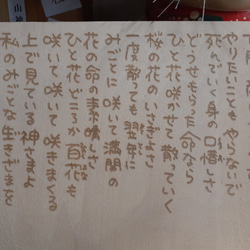 やりたいこともやらないで
死んでいく身の口惜しさ
どうせもらった命なら
ひと花咲かせて散っていく
桜の花のいさぎよさ
一度散っても翌年に
みごとに咲いて満開の
花の命の素晴しさ
ひと花どころか百花も
咲いて咲いて咲きまくる
上で見ている神さまよ
私のみごとな生きざまを